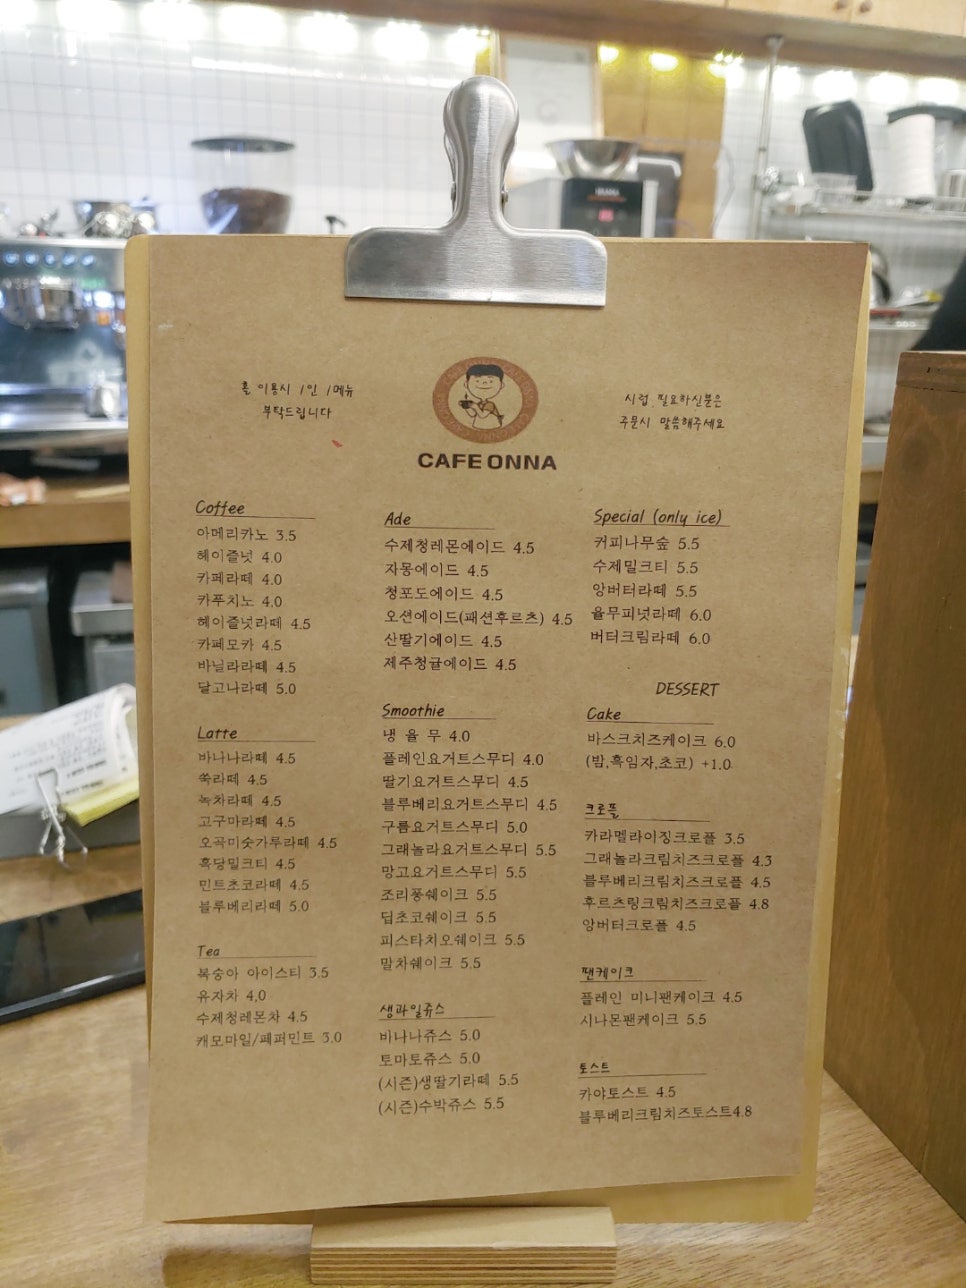 홀 이용시 1인 1메뉴
부탁드립니다
시럽 필요하신분은
주문시 말씀해주세요
CAFE ONNA
Coffee
아메리카노 3.5
헤이즐넛 4.0
카페라떼 4.0
카푸치노 4.0
헤이즐넛라떼 4.5
카페모카 4.5
바닐라라떼 4.5
달고나라떼 5.0
Latte
바나나라떼 4.5
쑥라떼 4.5
녹차라떼 4.5
고구마라떼 4.5
오곡미숫가루라떼 4.5
흑당밀크티 4.5
민트초코라떼 4.5
블루베리라떼 5.0
Tea
복숭아 아이스티 3.5
유자차 4.0
수제청레몬차 4.5
캐모마일/페퍼민트 3.0
Ade
수제청레몬에이드 4.5
자몽에이드 4.5
청포도에이드 4.5
오션에이드(패션후르츠) 4.5
산딸기에이드 4.5
제주청귤에이드 4.5
Smoothie
냉 율 무 4.0
플레인요거트스무디 4.0
딸기요거트스무디 4.5
블루베리요거트스무디 4.5
구름요거트스무디 5.0
그래놀라요거트스무디 5.5
망고요거트스무디 5.5
조리퐁쉐이크 5.5
딥초코쉐이크 5.5
피스타치오쉐이크 5.5
말차쉐이크 5.5
생과일쥬스
바나나쥬스 5.0
토마토쥬스 5.0
(시즌)생딸기라떼 5.5
(시즌)수박쥬스 5.5
Special (only ice)
커피나무숲 5.5
수제밀크티 5.5
앙버터라떼 5.5
율무피넛라떼 6.0
버터크림라떼 6.0
DESSERT
Cake
바스크치즈케이크 6.0
(밤,흑임자,초코) +1.0
크로플
카라멜라이징크로플 3.5
그래놀라크림치즈크로플 4.3
블루베리크림치즈크로플 4.5
후르츠링크림치즈크로플 4.8
앙버터크로플 4.5
팬케이크
플레인 미니팬케이크 4.5
시나몬팬케이크 5.5
토스트
카야토스트 4.5
블루베리크림치즈토스트4.8